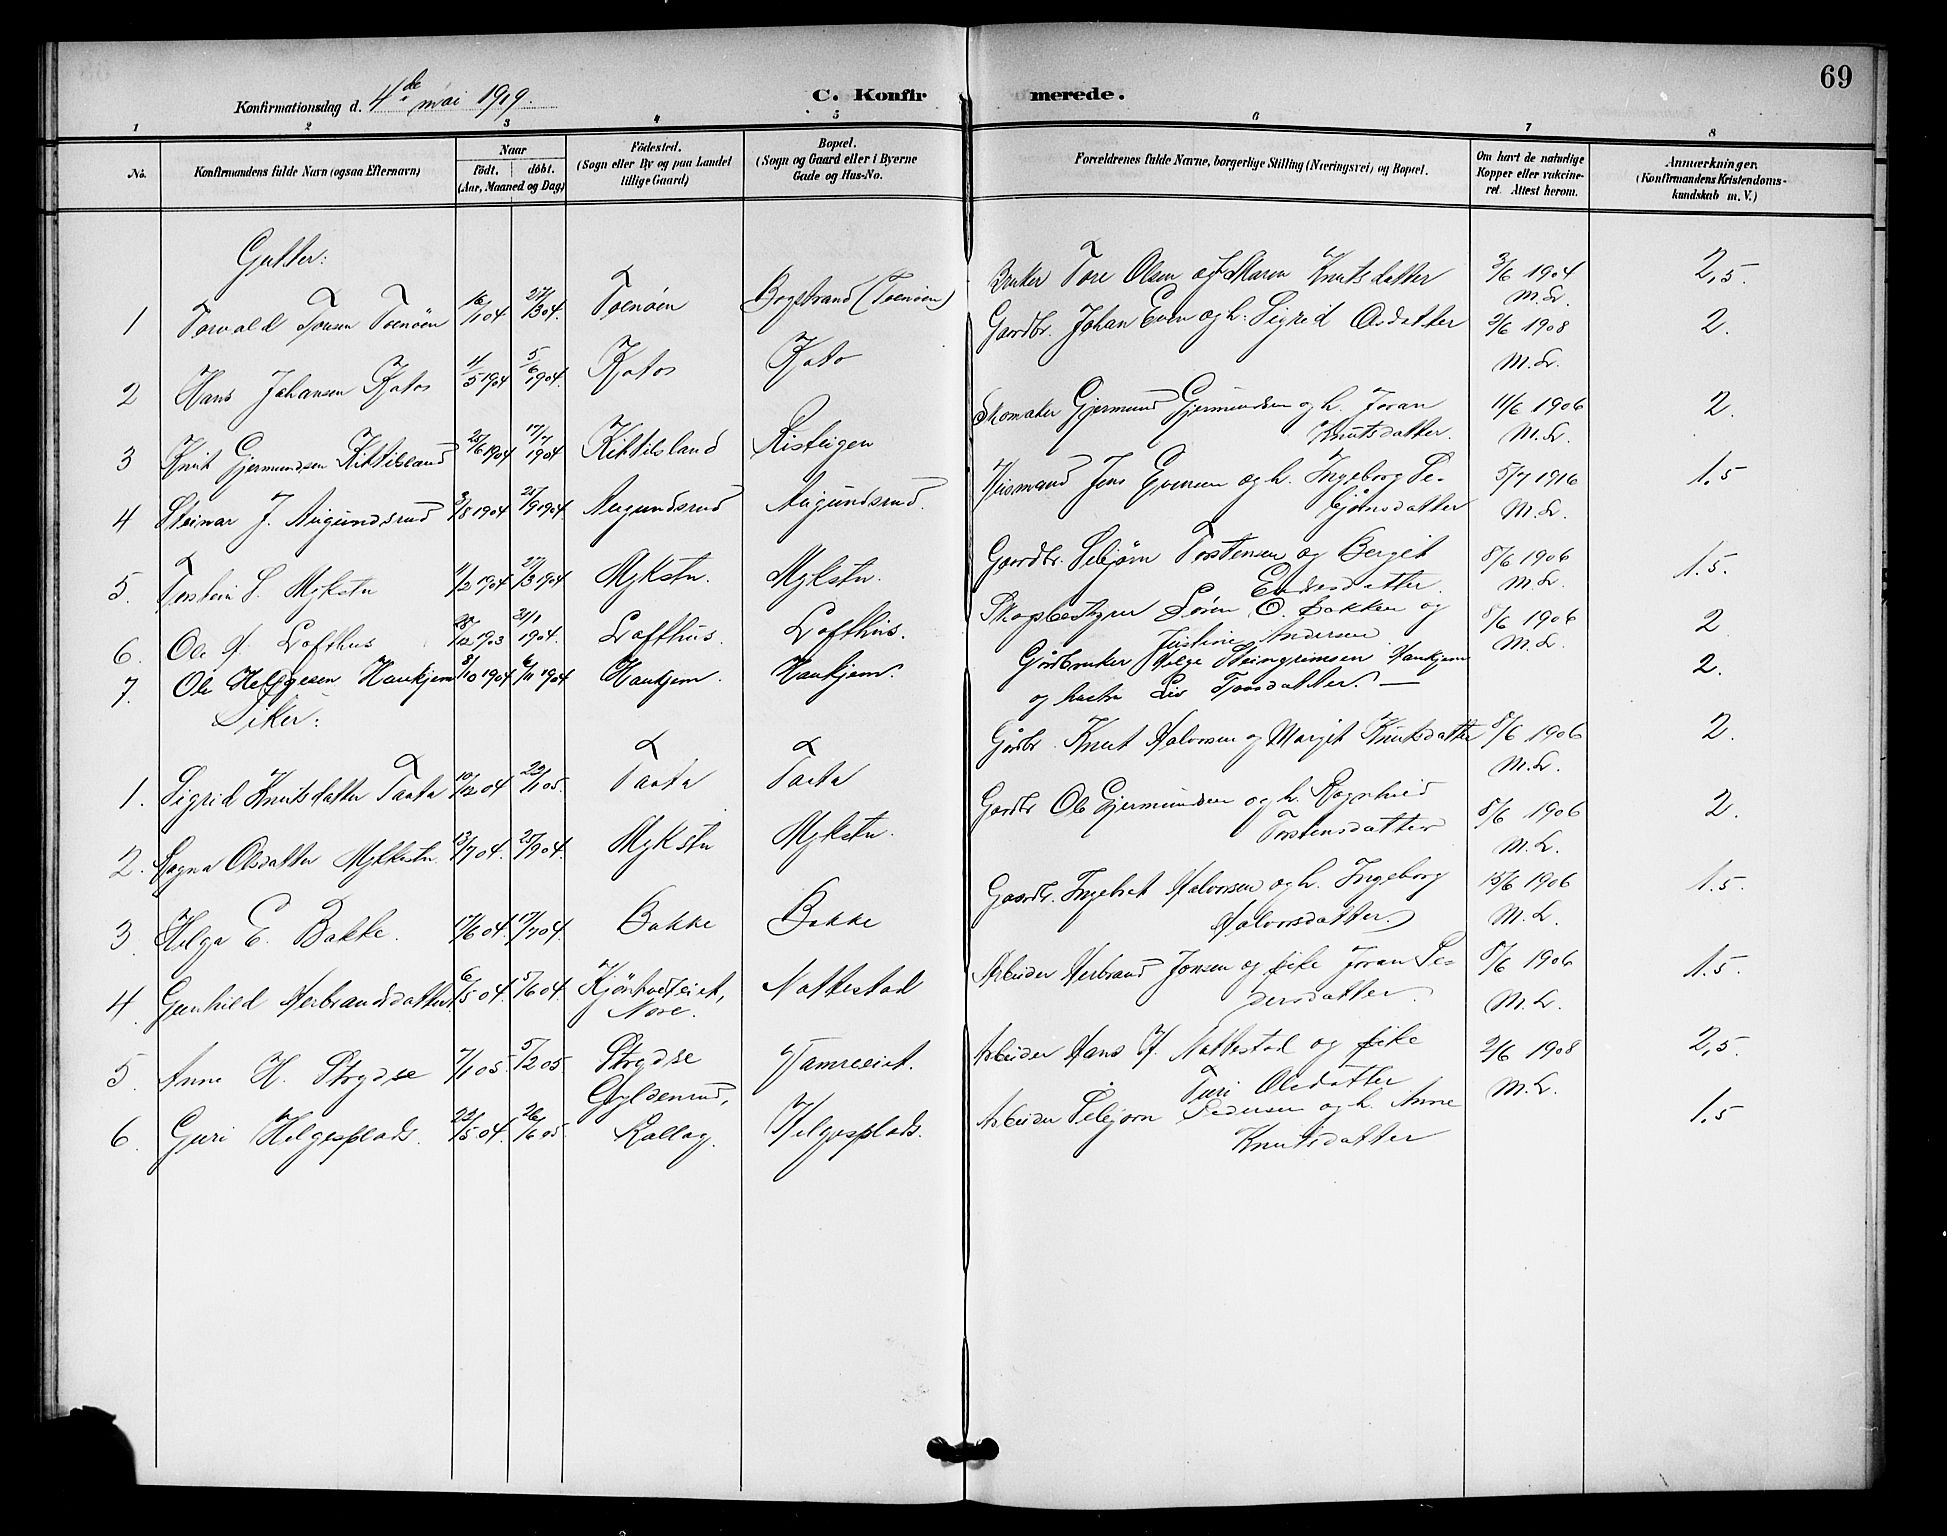 69
Konfirmationsdag d. 4de mai 1919.
C. Konfirmerede.
1 2 3 4 5 6 7 8
No. Konfirmandens fulde Navn (ogsaa Efternavn) Naar født. døbt. (Aar, Maaned og Dag) Fødested. (Sogn eller By og paa Landet tillige Gaard) Bopæl. (Sogn og Gaard eller i Byerne Gade og Hus-No. Forældrenes fulde Navne, borgerlige Stilling (Næringsvei) og Bopæl. Om havt de naturlige Kopper eller vaccineret. Attest herom. Anmærkninger. (Konfirmandens Kristendomskundskab m. V.)
Gutter:
1 Torvald Toresen Toenøen 16/1 04 27/3 04. Toenøen Bogstrand (Toenøen) Bruker Tore Olsen og Maren Knutsdatter 3/6 1904 M.L. 2,5
2 Hans Johansen Kjøtos 11/5 1904 5/6 1904. Kjøtos Gaardbr. Johan Even og h. Sigrid Osdatter 2/6 1908 M.L. 2.
3 Knut Gjermundsen Kittilsland 25/6 1904 17/7 1904 Kittilsland Risteigen Skomaker Gjermund Gjermundsen og h. Joran
Knutsdatter. 11/6 1906 M.L. 2
4 Steinar J. Augundsrud 3/8 1904 25/9 1904. Augundsrud Augundsrud. Husmand Jens Evensen og h. Ingeborg Se-
bjørnsdatter 5/7 1916 M.L. 1.5
5. Torstein S. Mykstu 11/2 1904 27/3 1904 Mykstu. Mykstu. Gaardbr. Sebjørn Torstensen og Berget
Endresdatter. 8/6 1906 M.L. 1.5.
6. Ole Lofthus 28/12 1903 31/1 1904. Lofthus. Lofthus. Skogbestyrer Søren O. Bakken og
Justine Andersen 8/6 1906 M.L. 2
7. Ole Helgesen Haukjem 8/10 1904 6/11 1904 Haukjem. Haukjem. Gårbruker Helge Steingrimsen Haukjem
og hustru Liv Torsdatter. — 2.
Piker:
1. Sigrid Knutsdatter Taata 10/12 04 22/1 05. Taata Taata Gårdbr. Knut Halvorsen og Margit Knutsdatter 8/6 1906 M.L. 2
2. Ragna Olsdatter Mykstu. 13/7 04. 25/9 04. Mykstu Mykstu. Gardbr Ole Gjermundsen og h. Ragnhild
Torstensdatter 8/6 1906 M.L. 2.
3. Helga E. Bakke. 17/6 04. 17/7 04. Bakke Bakke Gaardbr. Ingebret Halvorsen og h. Ingeborg
Halvorsdatter. 15/6 1906 M.L. 1.5.
4. Gunhild Herbrandsdatter. 6/5 04. 5/6 04. Nore. Nattestad Arbeider Herbrand Jonsen og pike Joran Pe-
dersdatter. 8/6 1906 M.L. 1.5.
5. Anne H. Strydse 7/1 05. 5/2 05 Strydse Arbeider Hans H. Nattestad og pike
Turi Olsdatter 2/6 1908 M.L. 2,5.
6. Guri Helgesplads. 22/5 04. 26/6 05. Gyldenrud, Rollag. Helgesplads. Arbeider Sebjørn Pedersen og h. Anne
Knutsdatter 1,5